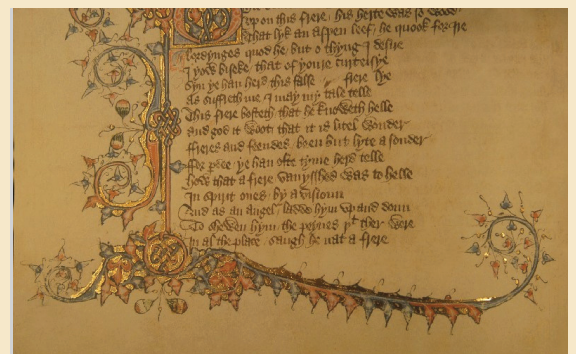 Vpon this frere / his herte was so wood
That lyk an aspen leef / he quook for Ire
Lordynges quod he / but o thyng I desire
I yow biseke / that of youre curteisye
Syn ye han herd this false / frere lye
As suffreth me I may my tale telle
This frere bosteth / that he knoweth helle
And god it woot / that it is litel wonder
ffreres and feendes / been but lyte a sonder
ffor pdee / ye han ofte tyme herd telle
How that a frere / vanysshed was to helle
In spirit ones / by a visioun
And as an angel / ladde hym vp and doun
To shewen hym / the peynes þt ther were
In al the place / saugh he nat a frere